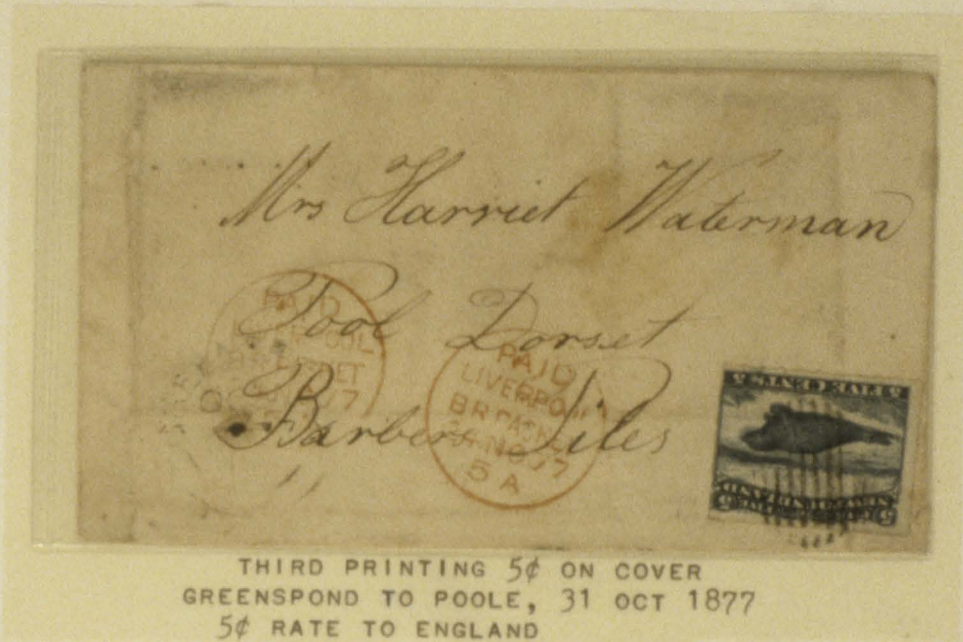 Mrs Harriet Waterman
Pool Dorset
Barbers Piles
PAID
PAID
LIVERPOOL
BR PACKET
5 A
FIVE CENTS
NEWFOUNDLAND
THIRD PRINTING 5¢ ON COVER
GREENSPOND TO POOLE, 31 OCT 1877
5¢ RATE TO ENGLAND